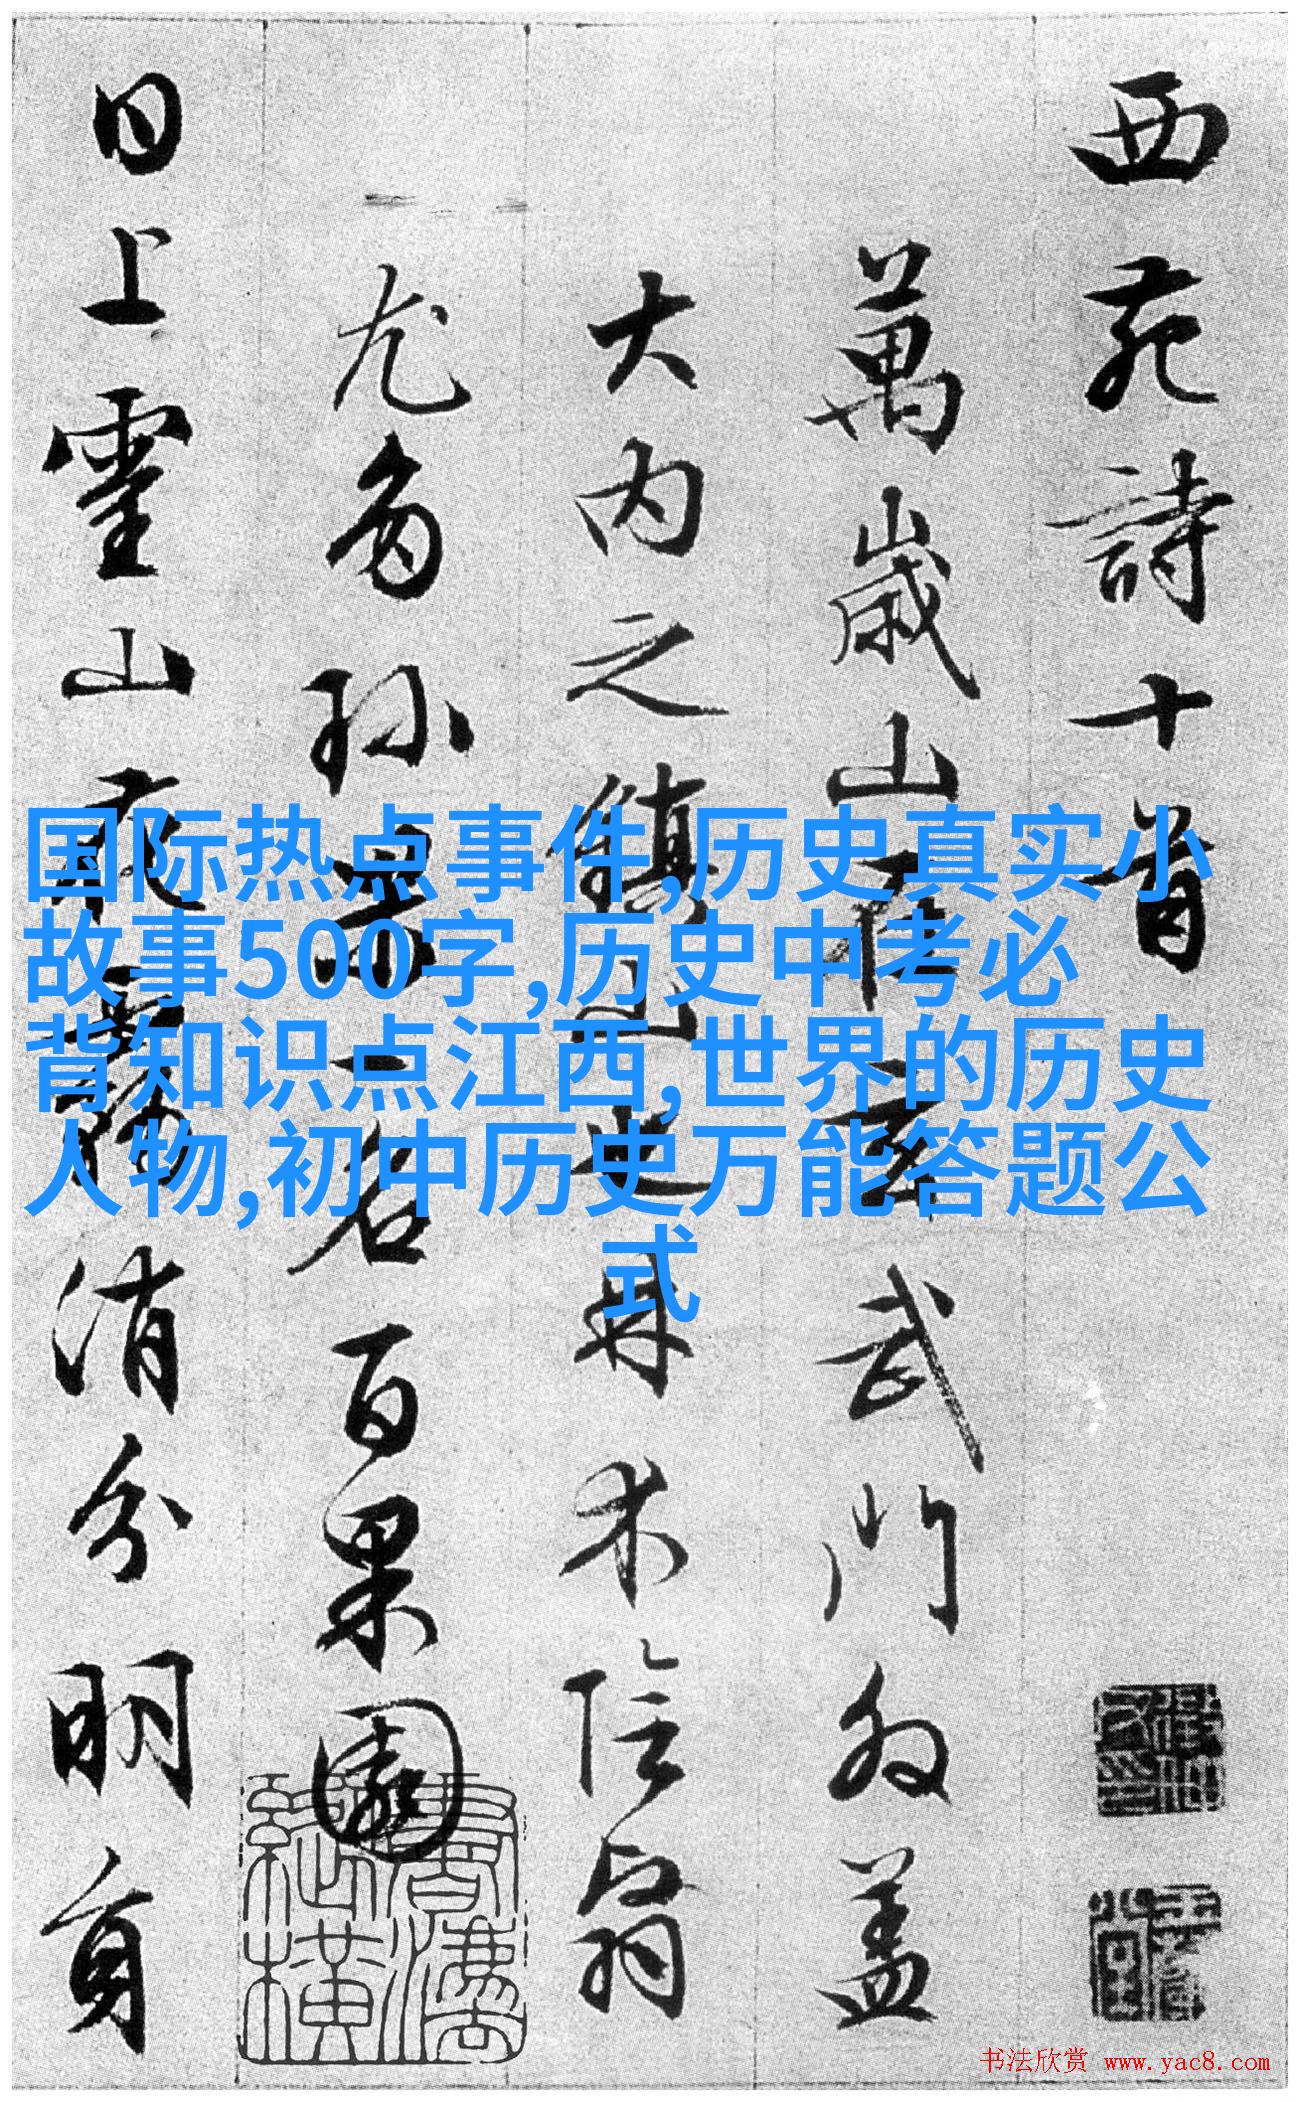 西苑詩十首
萬歲山在玄武門外蓋
大内之鎮山也其木陰翳
尤多珍果一名百果園
日上靈山夜靄消分明員
国际热点事件,历史真实小
故事500字,历史中考必
背知识点江西,世界的历史
人物,初中历史万能答题公
式
书法欣赏 www.yac8.com